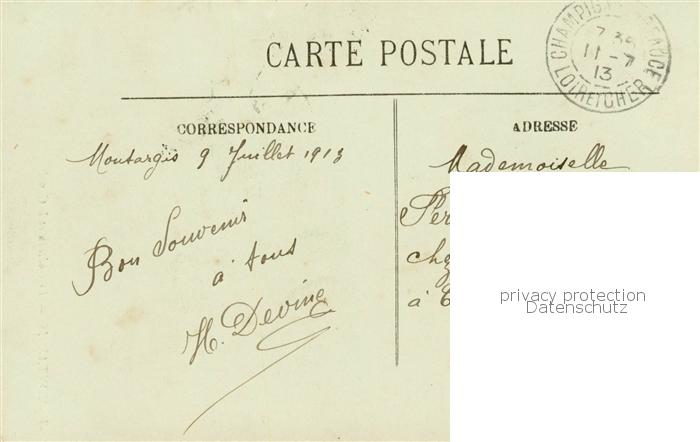 CARTE POSTALE
7 35
11-7
13
LOIR ET CHER
CORRESPONDANCE
ADRESSE
Montargis 9 Juillet 1913
Bon Souvenir
à tous
H. Devine
Mademoiselle
à
privacy protection
Datenschutz